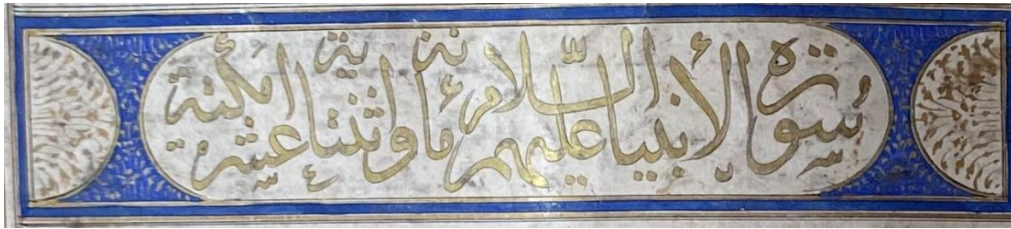 سورة الأنبيا عليهم السلام مائة واثنتا عشرة اية مكية